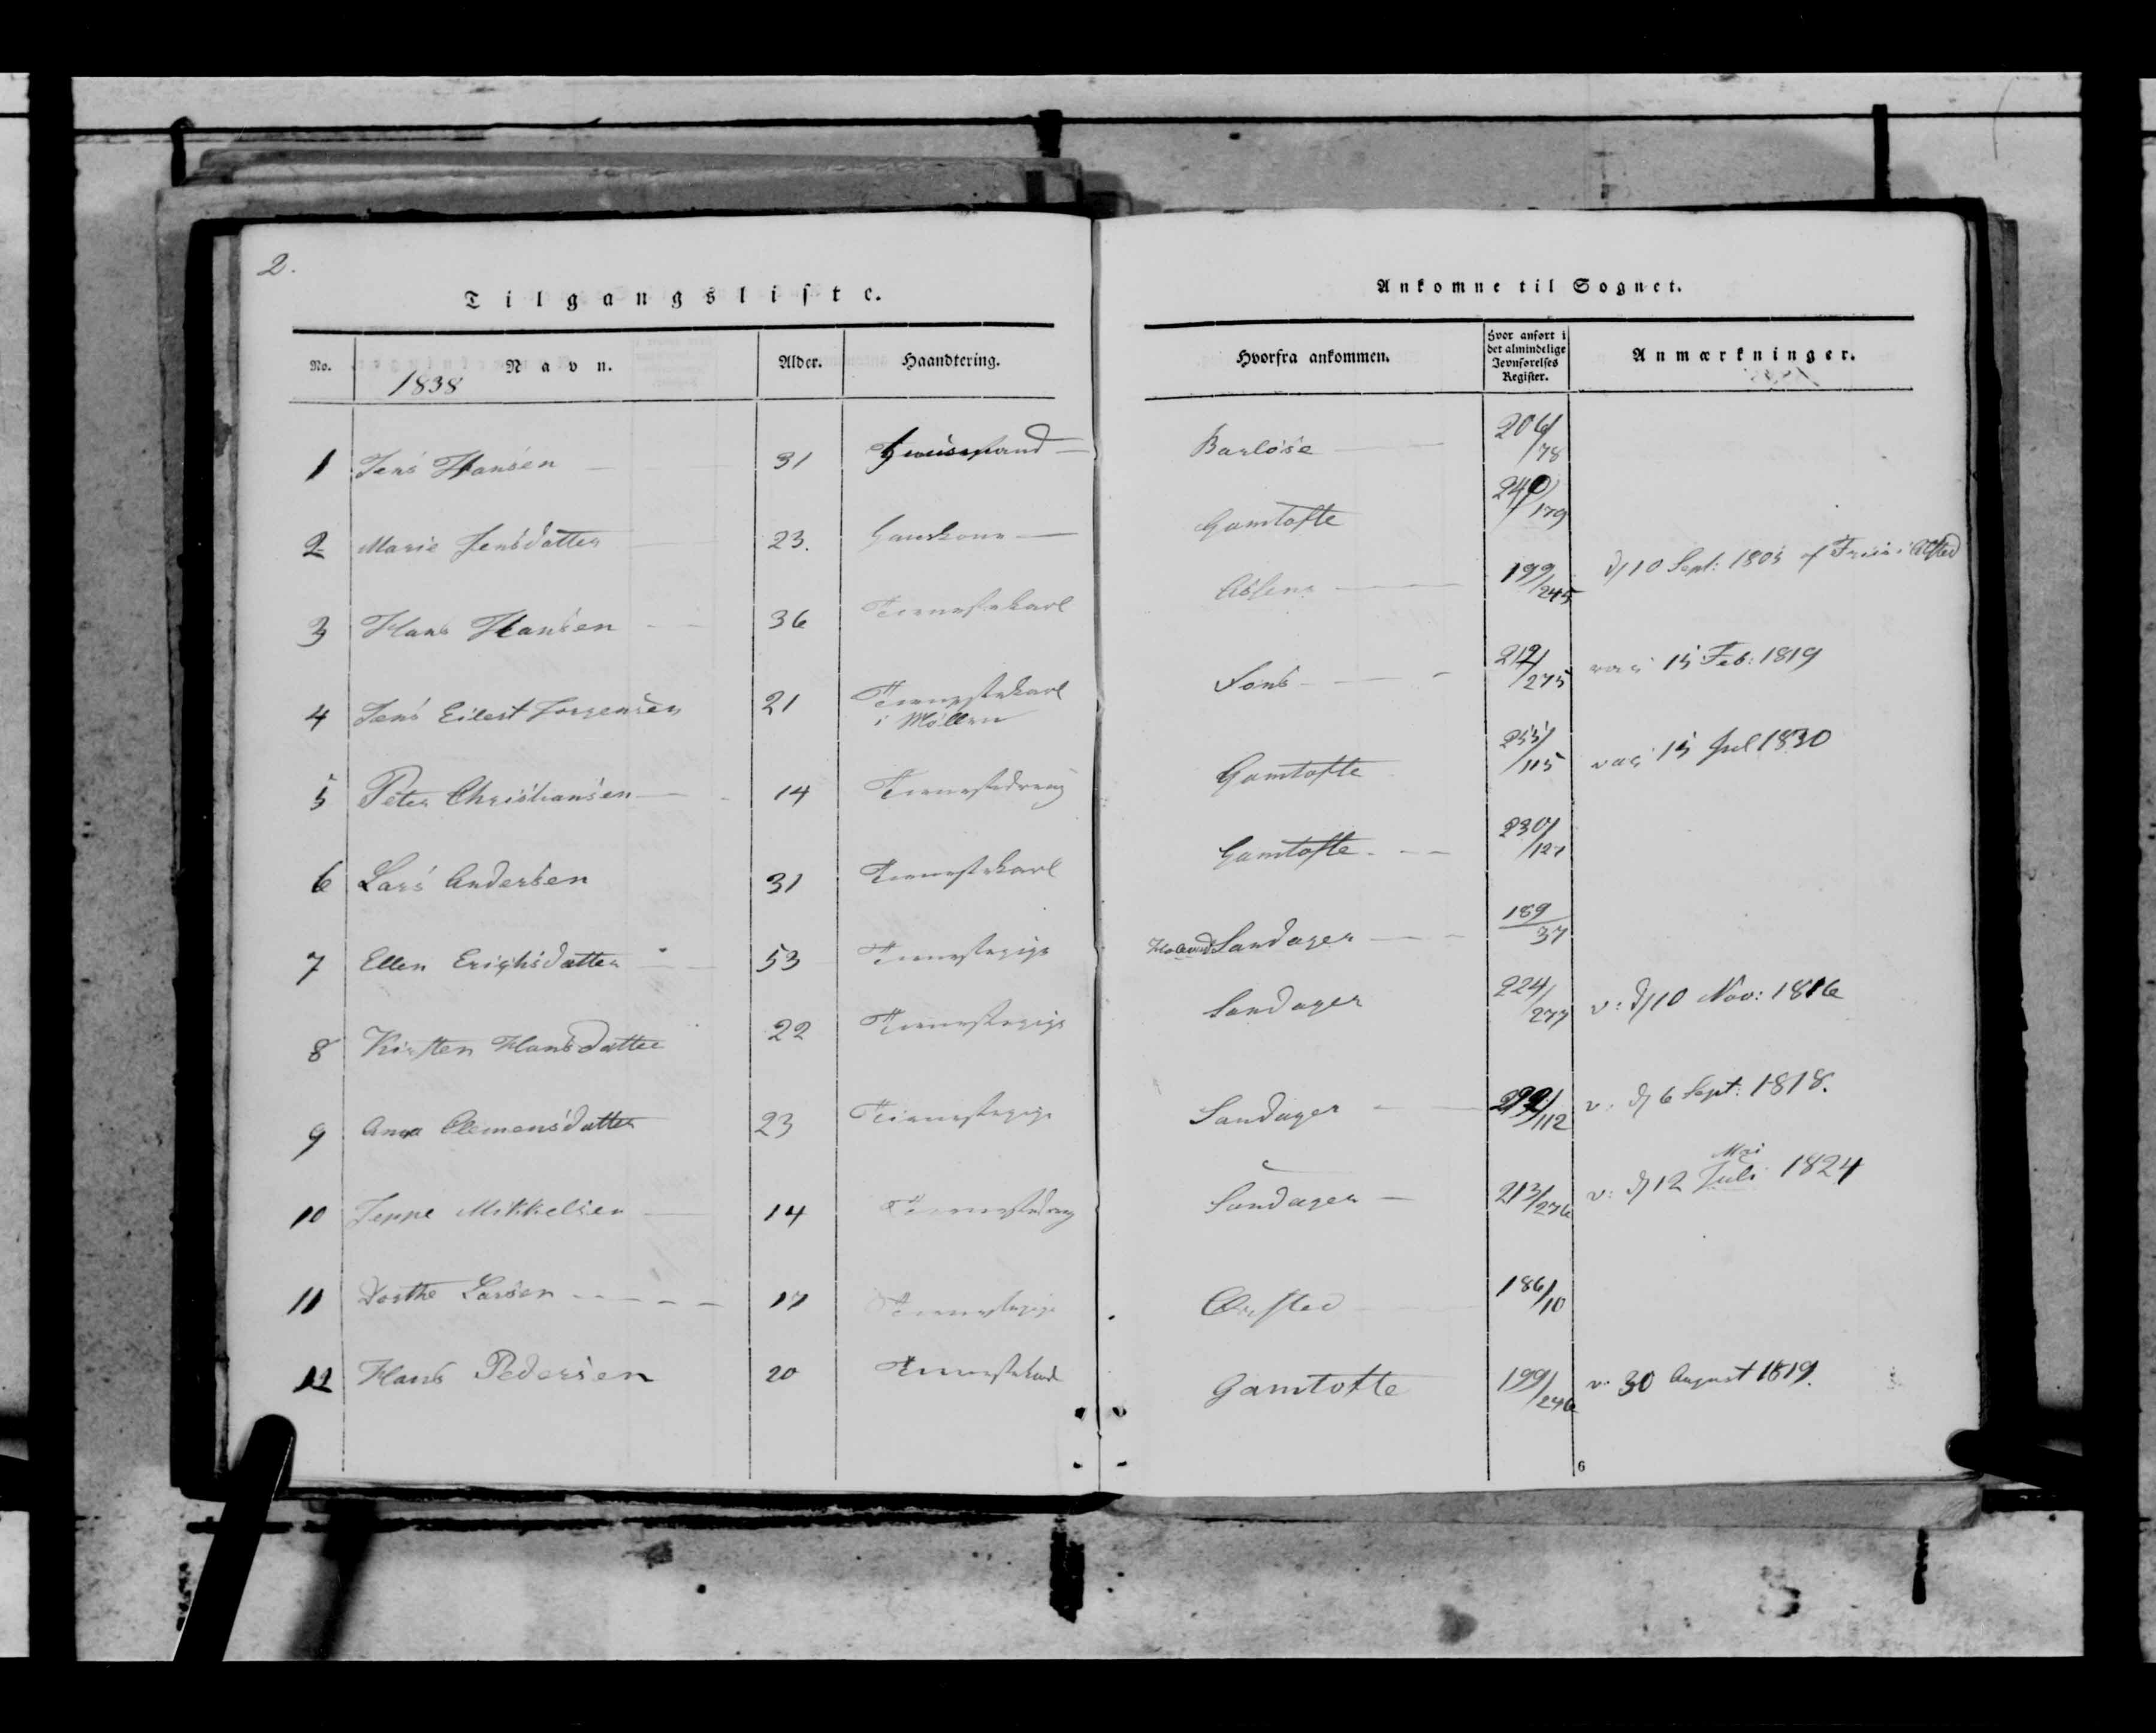 2.
Tilgangsliste.
No. Navn. Alder. Haandtering.
1838
1 Jens Hansen 31 Huusmand
2 Marie Jensdatter 23. Huuskone
3 Hans Hansen 36 Tienestekarl
4 Jens Eilert Jørgensen 21 Tienestekarl
i Møllen
5 Peter Christiansen 14 Tienestedreng
6 Lars Andersen 31 Tienestekarl
7 Ellen Erichsdatter 53 Tienestepige
8 Kirsten Hansdatter 22 Tienestepige
9 Anna Clemensdatter 23 Tienestepige
10 Jeppe Mikkelsen 14 Tienestedreng
11 Dorthe Larsen 17 Tienestepige
12 Hans Pedersen 20 Tienestekarl
Ankomne til Sognet.
Hvorfra ankommen. Hvor anført i det almindelige Jevnførelses Register. Anmærkninger.
Barløse 206/78
Gamtofte 240/179
Assens 199/245 d/10 Sept: 1803 af Friis i
Føns 212/275 vac 15 Feb: 1819
Gamtofte 255/115 vac 15 Jul 1830
Gamtofte 230/127
Sandager 189/37
Sandager 224/277 v: d/10 Nov: 1816
Sandager /112 v: d/6 Sept: 1818.
Mai
Sandager 213/276 v: d/12 Juli 1824
Ørsted 186/10
Gamtofte 199/246 v. 30 August 1819.
6